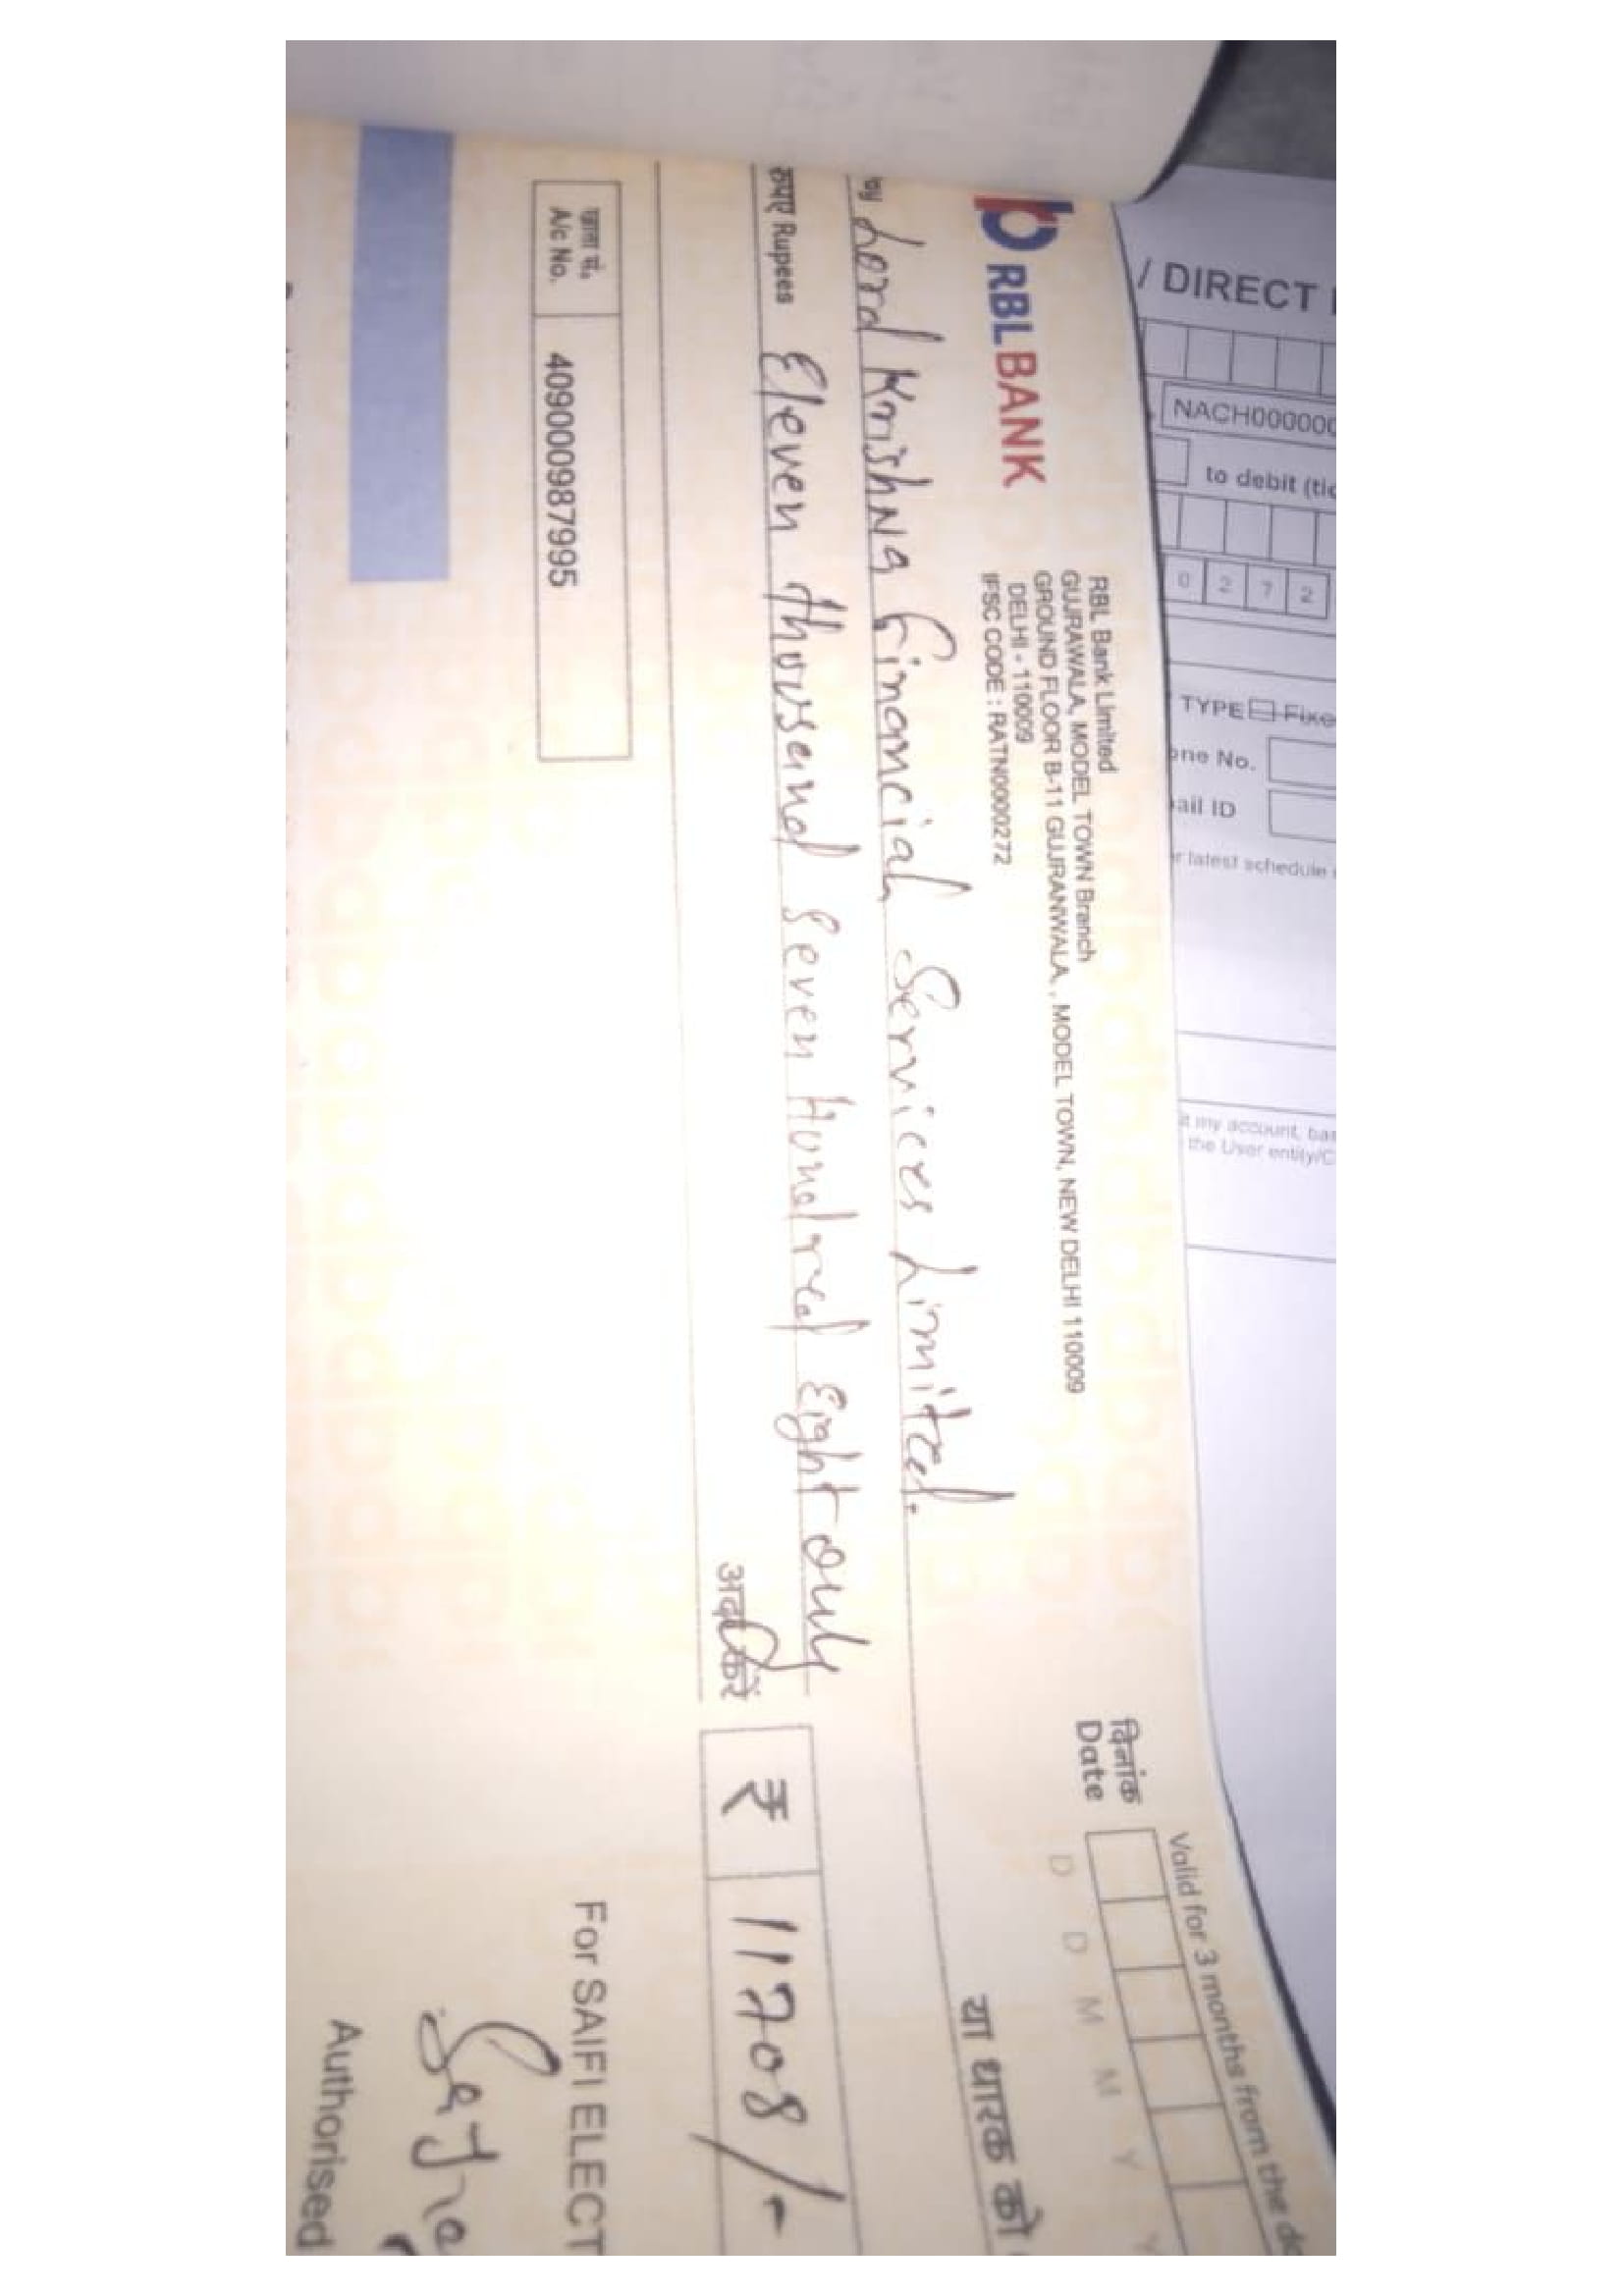 / DIRECT
NACH000000
to debit (tic
0 2 7 2
TYPE Fixe
one No.
ail ID
r latest schedule
t my account, bas
the User entity/C
Valid for 3 months from the da
दिनांक
Date
D D M M Y Y
RBL BANK
RBL Bank Limited
GUJRAWALA, MODEL TOWN Branch
GROUND FLOOR B-11 GUJRANWALA , MODEL TOWN, NEW DELHI 110009
DELHI - 110009
IFSC CODE : RATN0000272
ay Lord Krishna Financial Services Limited.
या धारक को
रुपए Rupees Eleven thousand Seven Hundred Eight only
अदा करें ₹ 11708/-
खाता सं.
A/c No. 409000987995
For SAIFI ELECT
Authorised